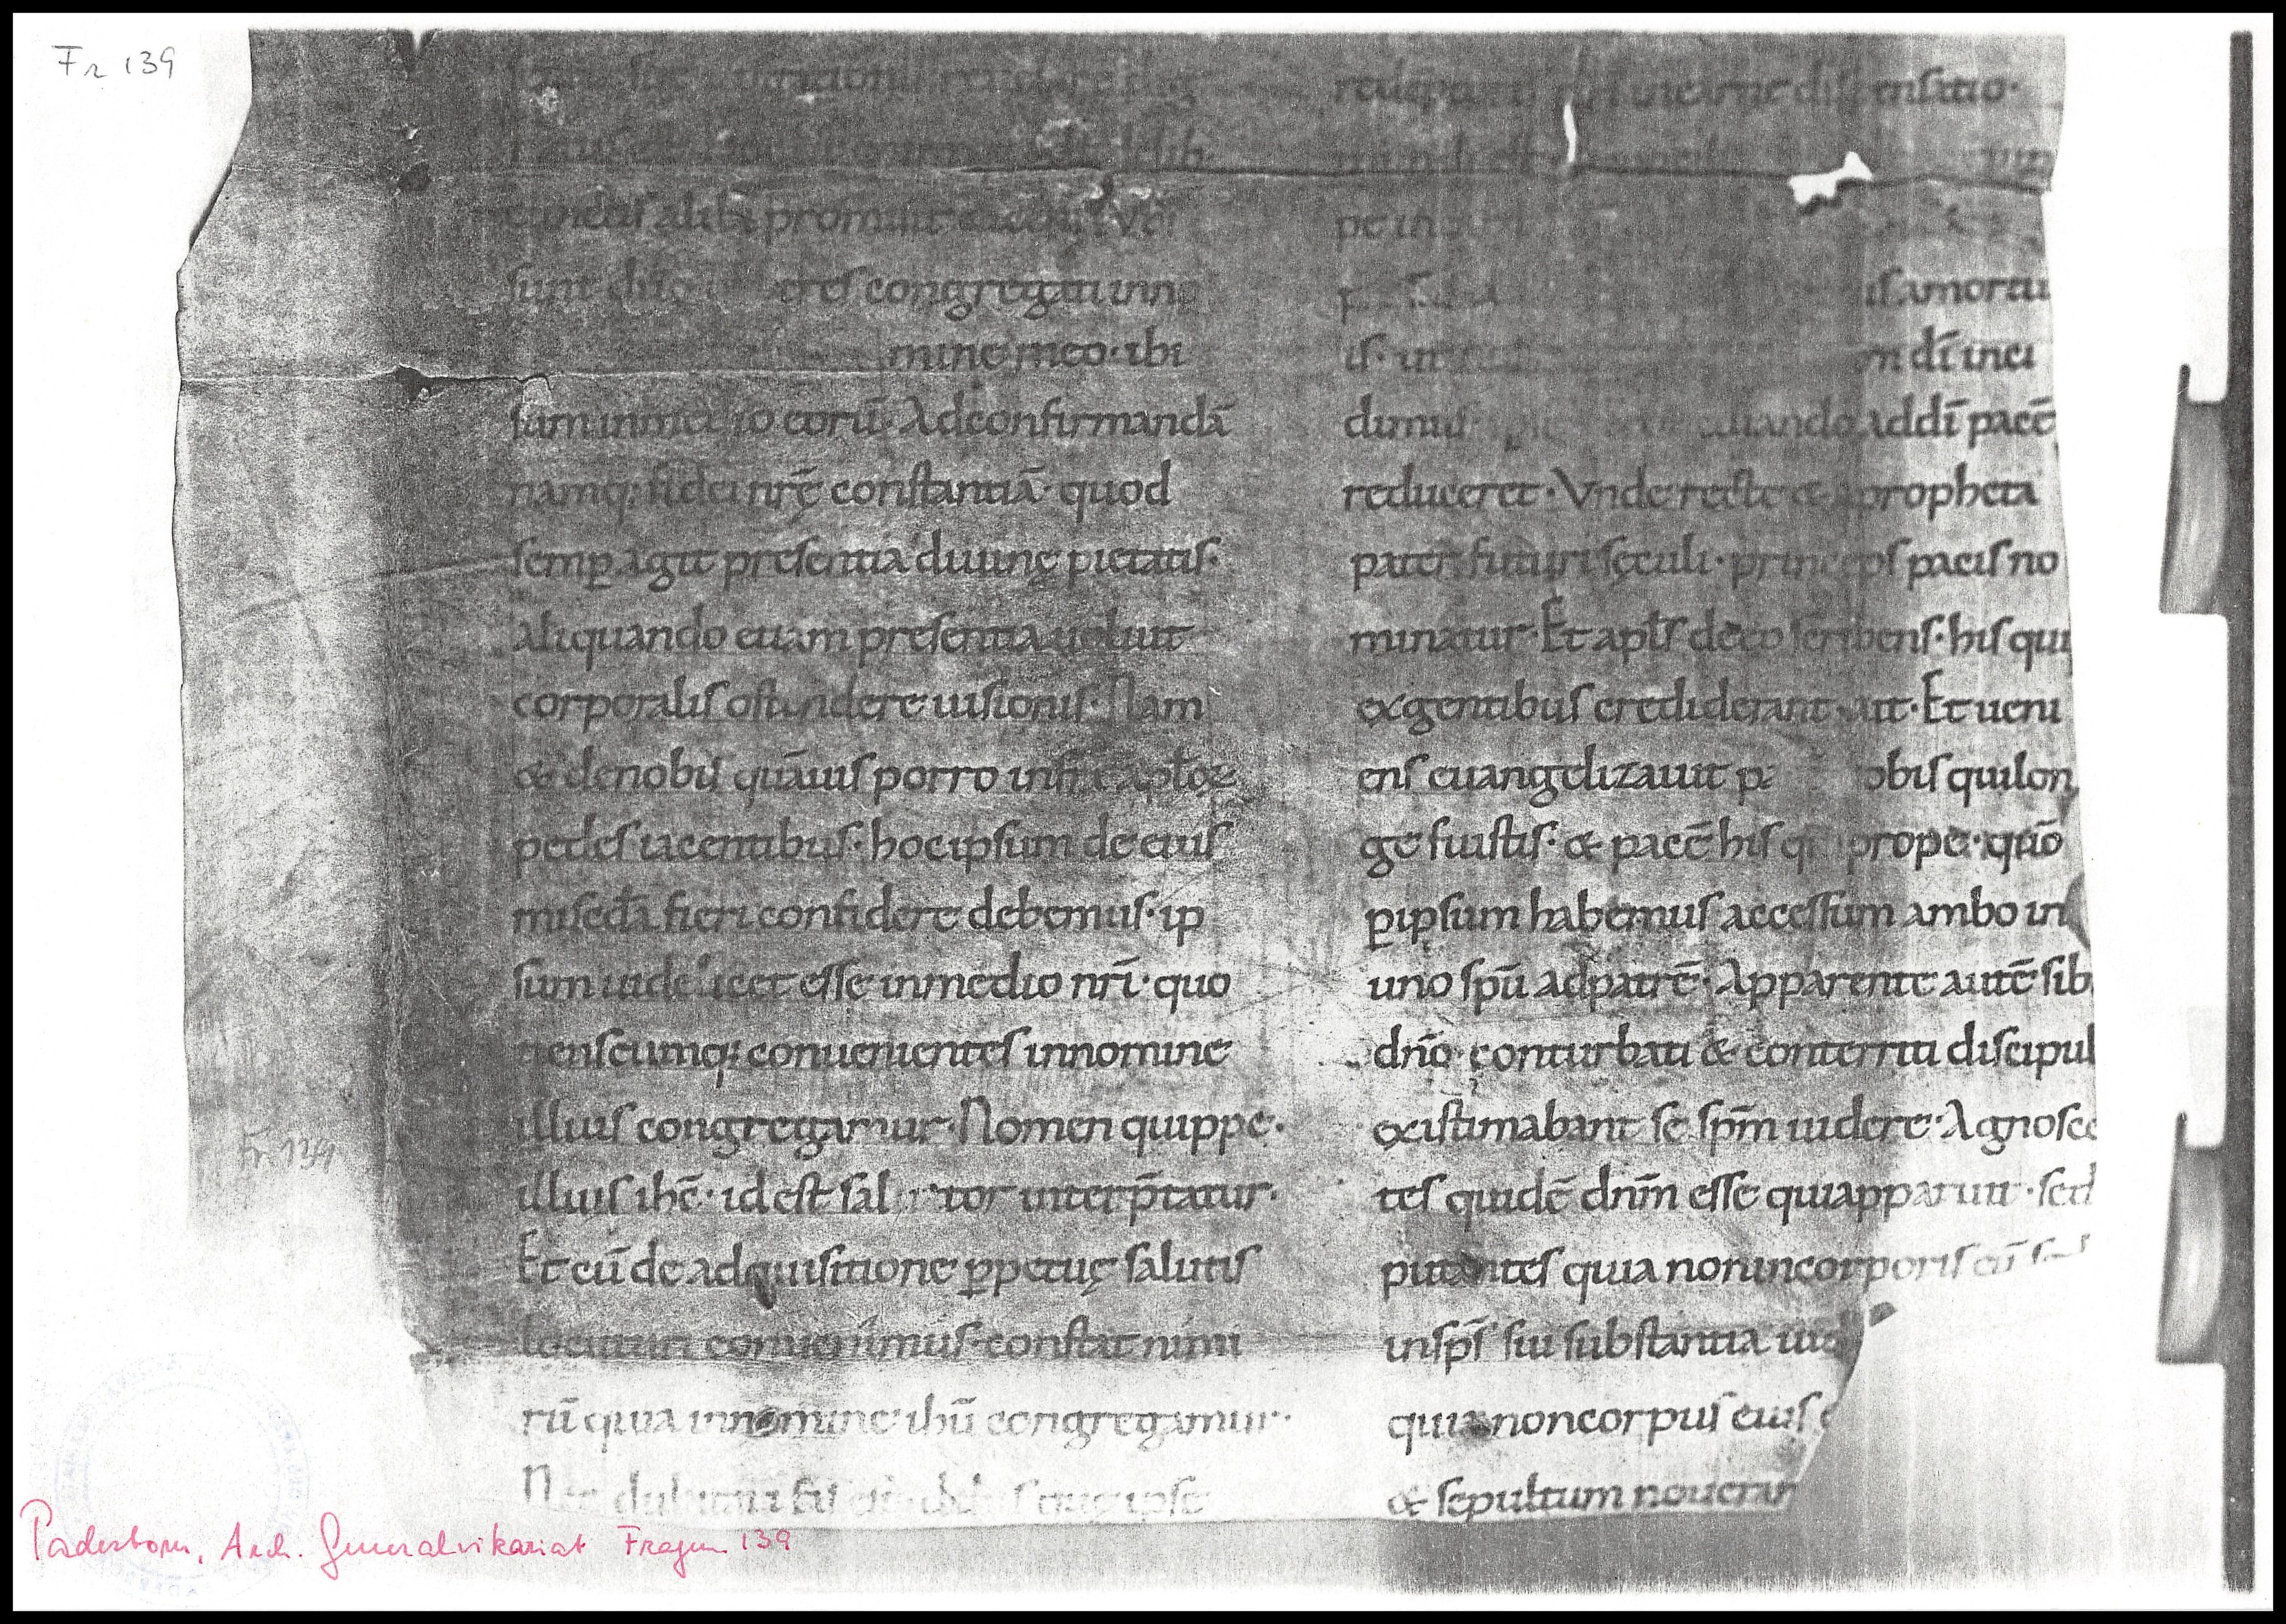 Fr 139
cunctis alibi promittit dicens Vbi
sunt duo tres congregati inno
mine meo· ibi
sum inmedio eorū· Adconfirmandā
namq; fidei nrę̄ constantiā· quod
semp̱ agit presentia diuinę pietatis·
aliquando etiam presentia uoluit
corporalis ostendere uisionis· Nam
& denobis quāuis porro infra aplo℞
pedes iacentibus· hoc ipsum de eius
mised̄a fieri confidere debemus· ip
sum uidelicet esse inmedio nrī· quo
tienscumq; conuenientes innomine
illius congregamur· Nomen quippe·
illius ihē· id est sal tor interp̄tatur·
Et cū de adquisitione p̱petuę salutis
locuturi conuenimus· constat nimi
rū quia innomine ihū congregamur·
Nec
ipse
ensatio·
pe in
is amortu
is· in
n dī inci
dimus
uando addī pacē
reduceret· Vnde recte & propheta
pater futuri sęculi· princeps pacis no
minatur· Et apls̄ de eo scribens· his qui
exgentibus crediderant ait· Et ueni
ens euangelizauit p obis qui lon
ge fuistis· & pacē his q prope· quō
p̱ipsum habemus accessum ambo in
uno spū adpatrē· Apparente autē sib
dnō conturbati & conterriti discipul
existimabant se spm̄ uidere· Agnosce
tes quidē dnm̄ esse qui apparuit· sed
putantes quia non incorporis eū
in sps̄ sui substantia uid
quia non corpus eius
& sepultum noueran
Fr. 139
Paderborn, Arch. Generalvikariat Fragm 139